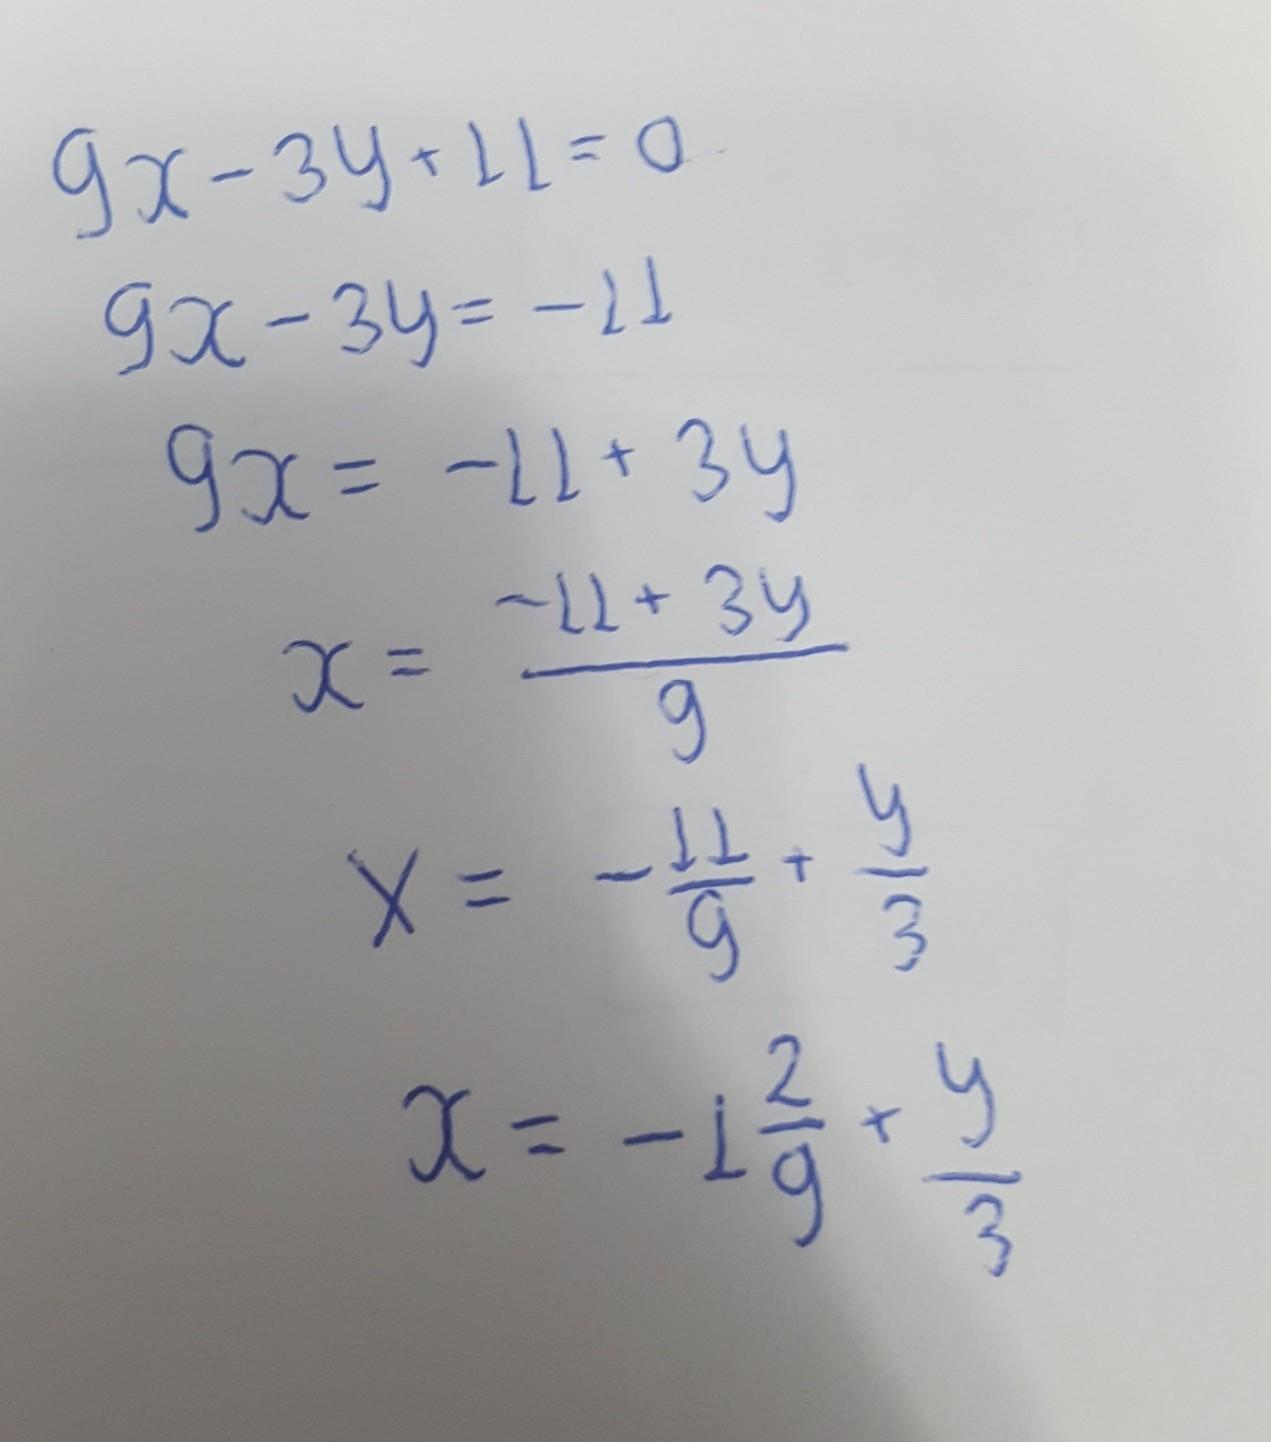 9x - 3y + 11 = 0
9x - 3y = -11
9x = -11 + 3y
x = \frac{-11 + 3y}{9}
x = -\frac{11}{9} + \frac{y}{3}
x = -1\frac{2}{9} + \frac{y}{3}